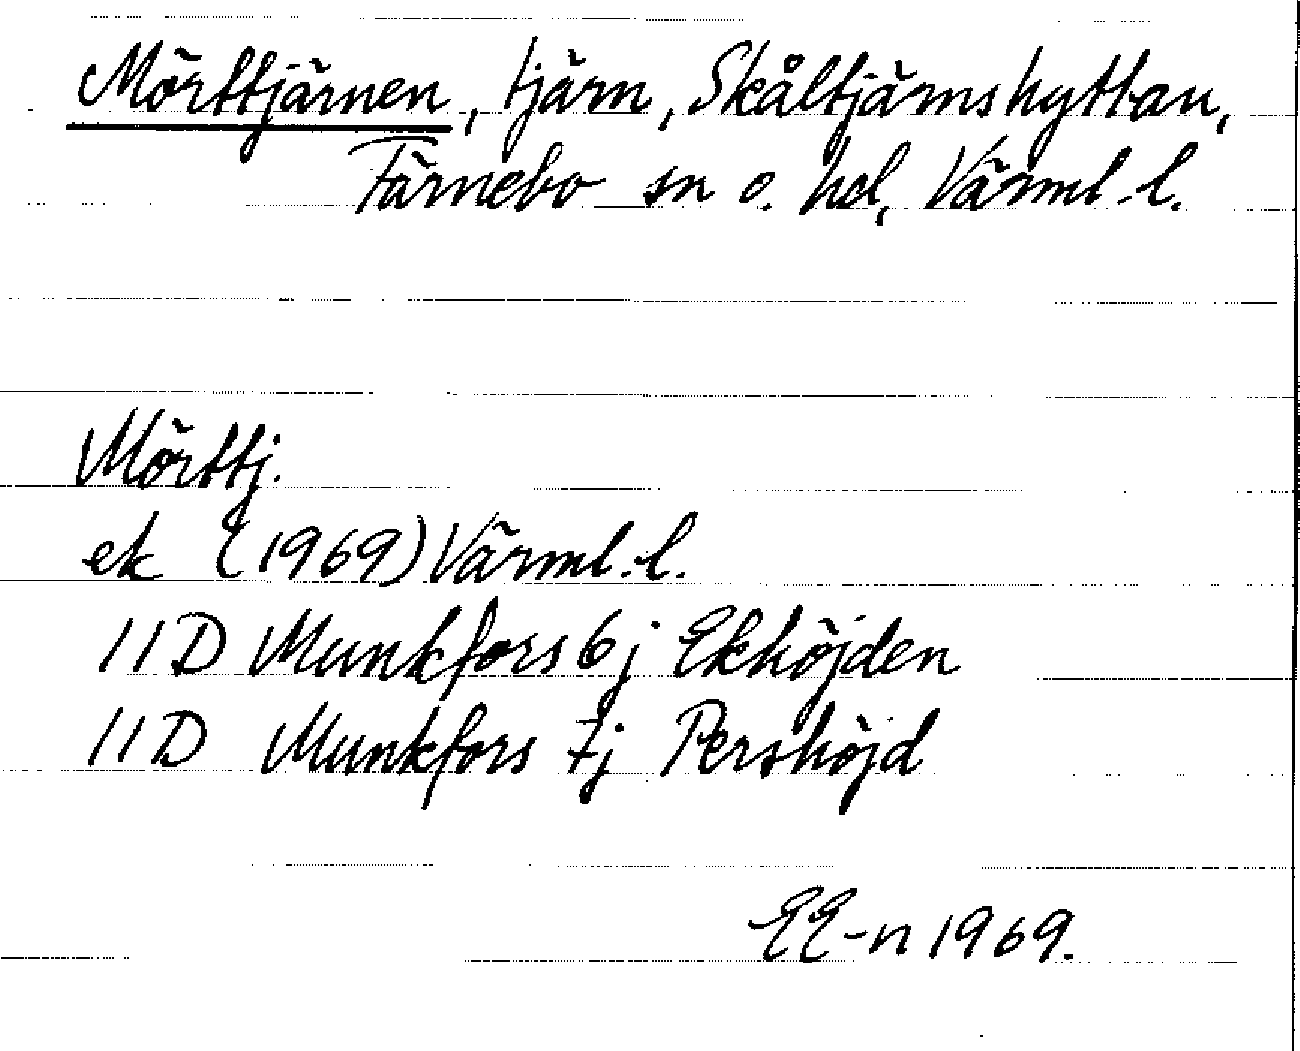 Mörttjärnen, tjärn, Skåltjärnshyttan,
Färnebo sn o. hd, Värml. l.
Mörttj.
ek (1969) Värml. l.
11D Munkfors 6j Ekhöjden
11D Munkfors 7j Pershöjd
EE-n 1969.